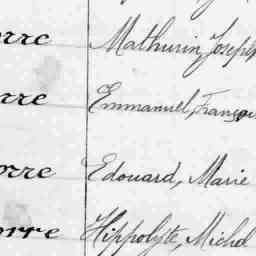 orre Mathurin, Joseph
rre Emmanuel, Françoi
orre Edouard, Marie
orre Hippolyte, Michel